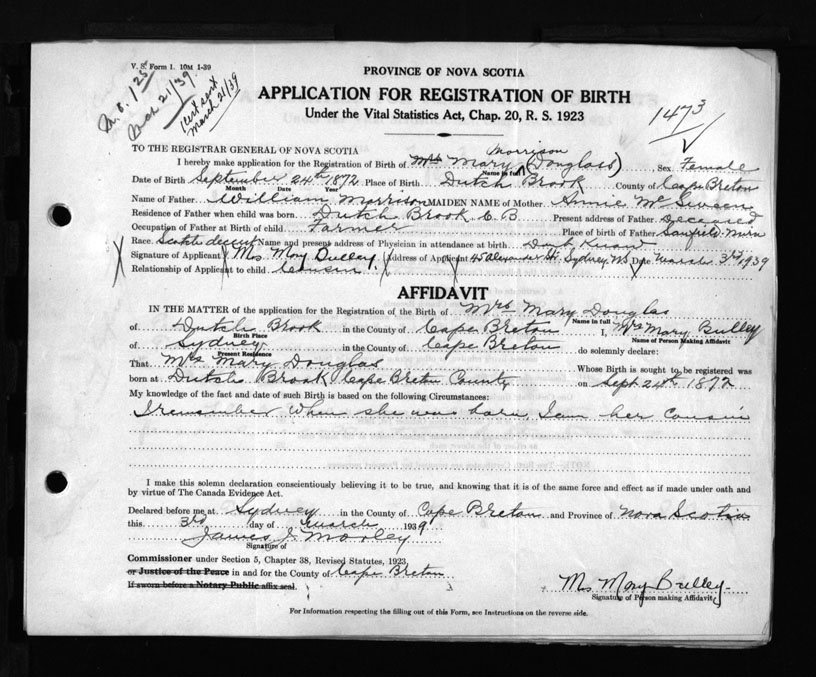 V. S. Form 1. 10M 1-39
M. O. 1.25
March 21/39
Cert sent
March 21/39
1473
PROVINCE OF NOVA SCOTIA
APPLICATION FOR REGISTRATION OF BIRTH
Under the Vital Statistics Act, Chap. 20, R. S. 1923
TO THE REGISTRAR GENERAL OF NOVA SCOTIA
Morrison
I hereby make application for the Registration of Birth of Mrs Mary (Douglass) Sex Female
Name in full
Date of Birth September 24th 1872 Place of Birth Dutch Brook County of Cape Breton
Month Date Year
Name of Father William Morrison MAIDEN NAME of Mother Annie Mc
Residence of Father when child was born Dutch Brook C. B Present address of Father Deceased
Occupation of Father at Birth of child Farmer Place of birth of Father Mira
Race Scotch decent Name and present address of Physician in attendance at birth Dont Know
Signature of Applicant Mrs. Mary Bulley Address of Applicant 45 Alexander St. Sydney NS Date March 3rd 1939
Relationship of Applicant to child Cousin
AFFIDAVIT
IN THE MATTER of the application for the Registration of the Birth of Mrs Mary Douglas
Name in full
of Dutch Brook in the County of Cape Breton I, Mrs Mary Bulley
Birth Place Name of Person Making Affidavit
of Sydney in the County of Cape Breton do solemnly declare:
Present Residence
That Mrs Mary Douglas Whose Birth is sought to be registered was
born at Dutch Brook Cape Breton County on Sept 24th 1872
My knowledge of the fact and date of such Birth is based on the following Circumstances:
I remember when she was born, I am her Cousin
I make this solemn declaration conscientiously believing it to be true, and knowing that it is of the same force and effect as if made under oath and
by virtue of The Canada Evidence Act.
Declared before me at Sydney in the County of Cape Breton and Province of Nova Scotia
this 3rd day of March 1939
James J Morley
Signature of
Commissioner under Section 5, Chapter 38, Revised Statutes, 1923
or Justice of the Peace in and for the County of Cape Breton
If sworn before a Notary Public affix seal.
Mrs Mary Bulley
Signature of Person making Affidavit
For Information respecting the filling out of this Form, see Instructions on the reverse side.